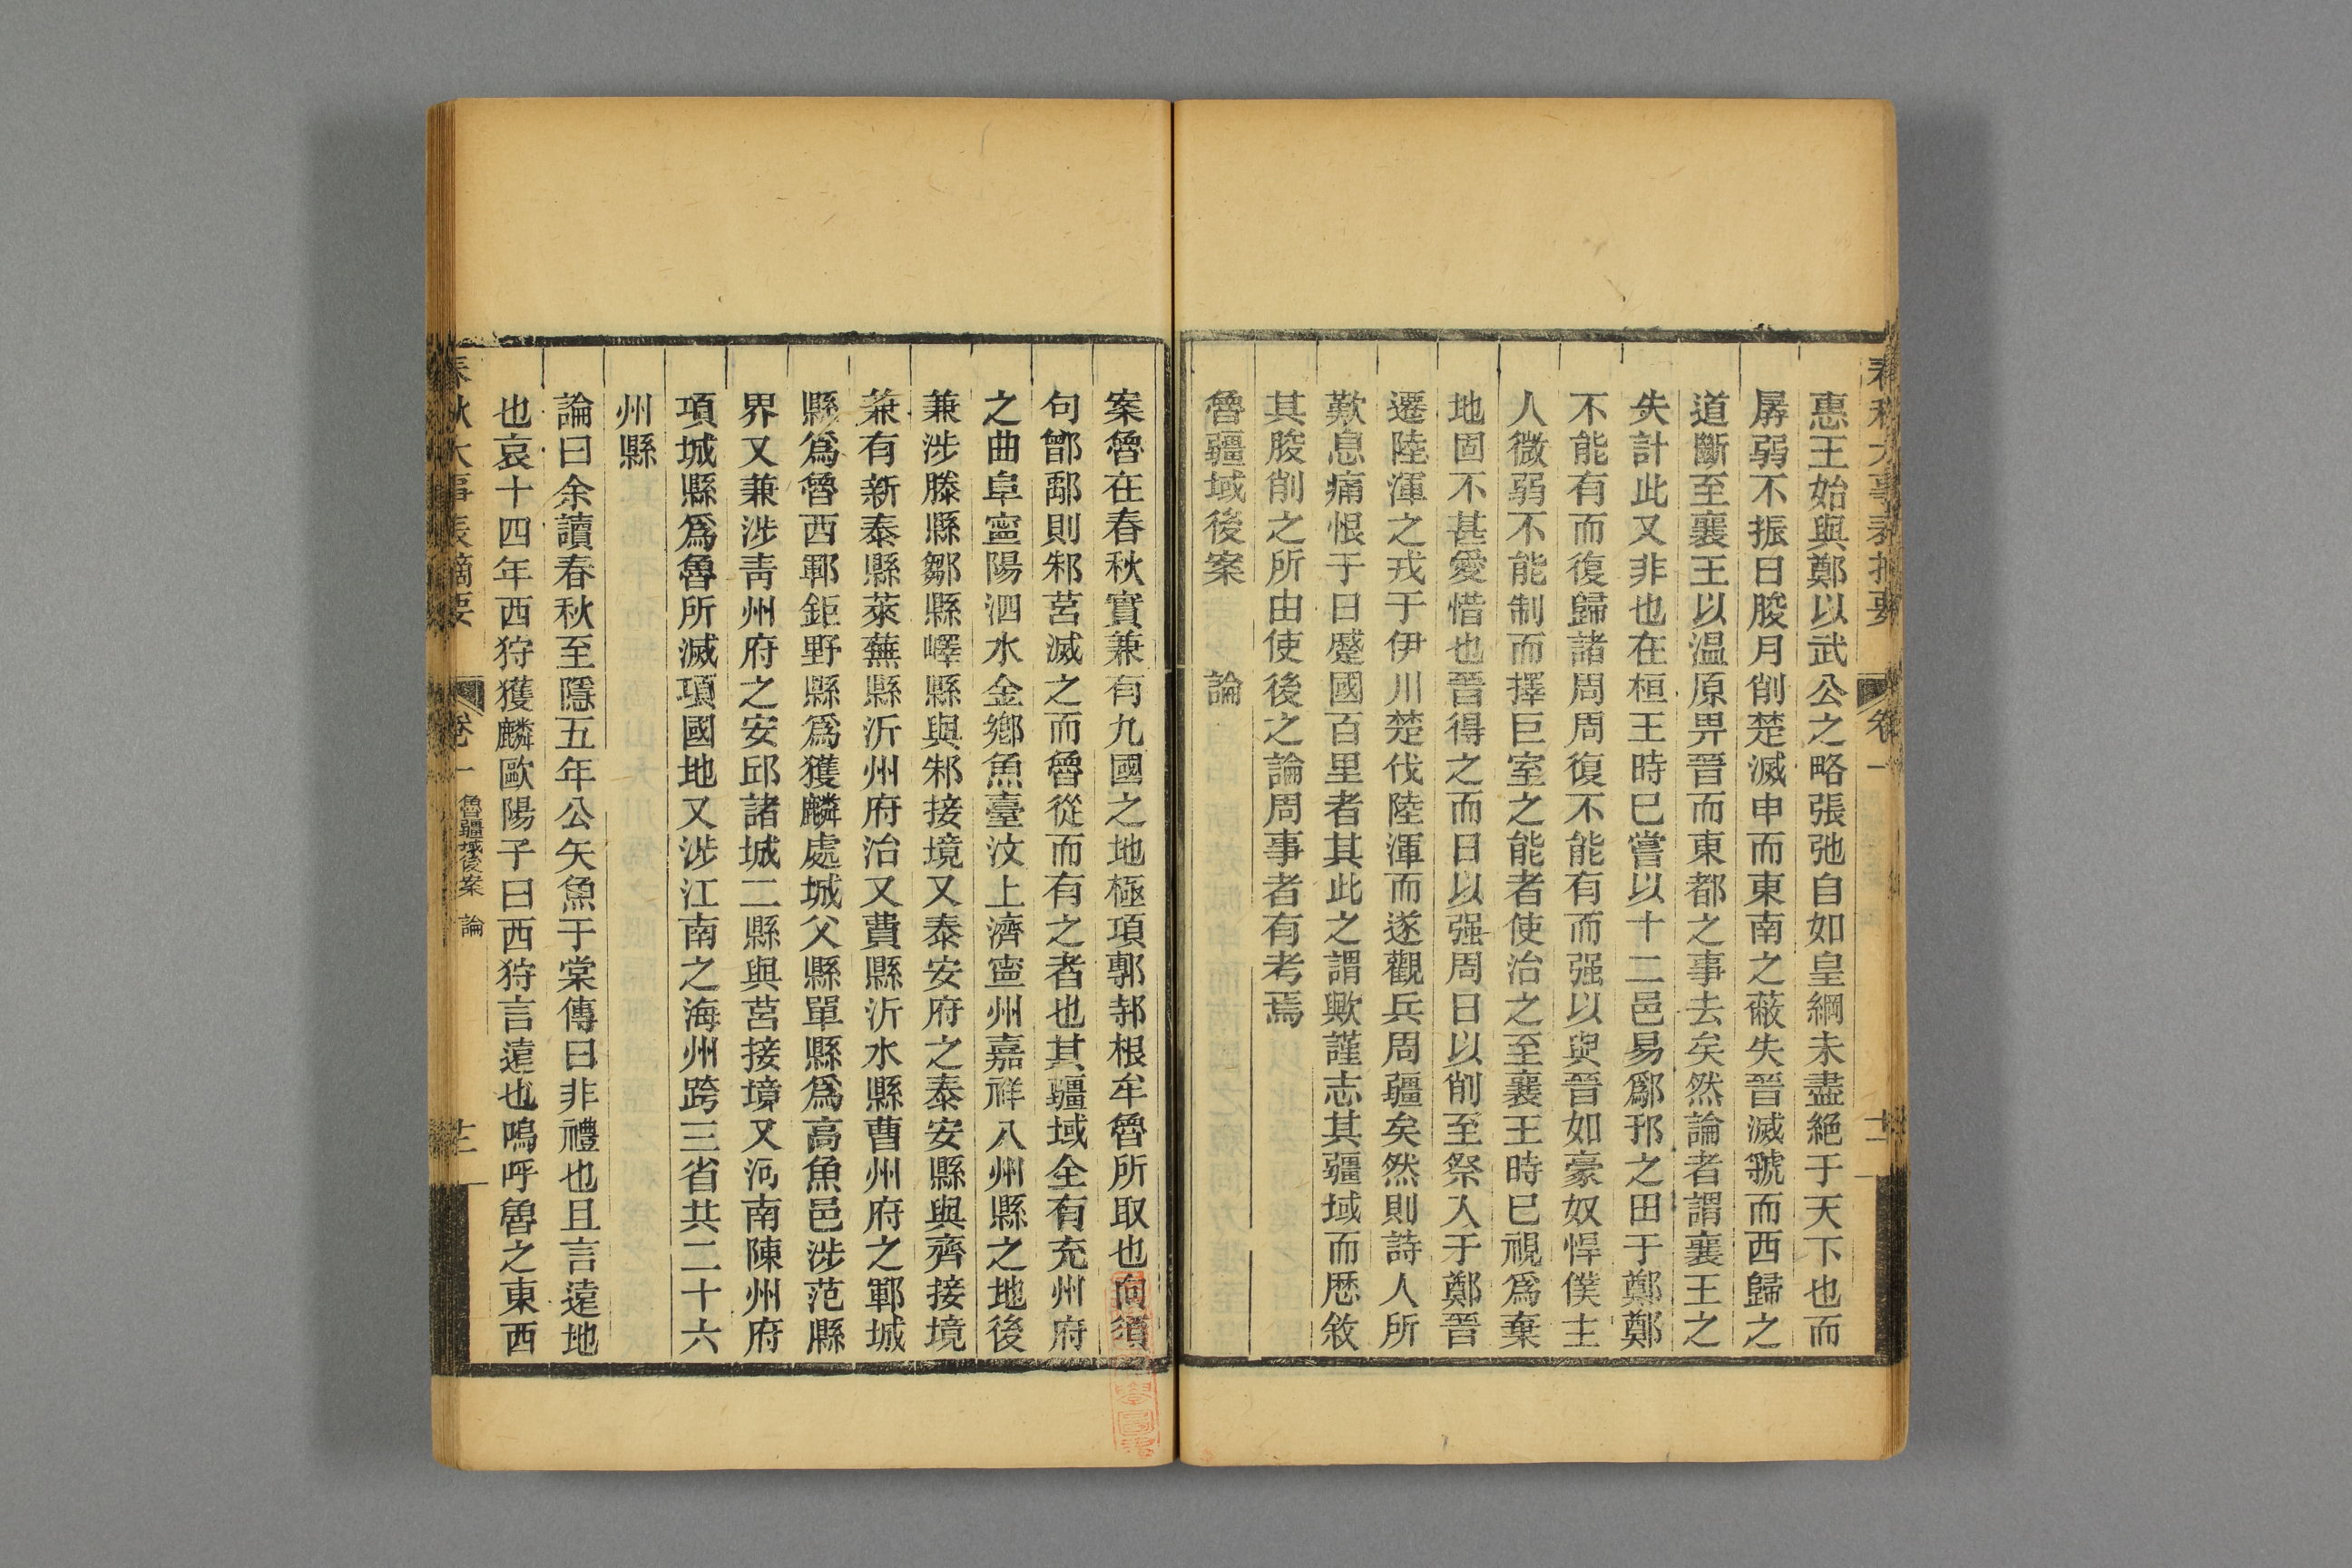 春秋大事表摘要 卷一 十二
惠王始與鄭以武公之略張弛自如皇綱未盡絕于天下也而
孱弱不振日朘月削楚滅申而東南之蔽失晉滅虢而西歸之
道斷至襄王以溫原畀晉而東都之事去矣然論者謂襄王之
失計此又非也在桓王時已嘗以十二邑易鄔邘之田于鄭鄭
不能有而復歸諸周周復不能有而强以與晉如豪奴悍僕主
人微弱不能制而擇巨室之能者使治之至襄王時已視爲棄
地固不甚愛惜也晉得之而日以强周日以削至祭入于鄭晉
遷陸渾之戎于伊川楚伐陸渾而遂觀兵周疆矣然則詩人所
歎息痛恨于日蹙國百里者其此之謂歟謹志其疆域而歷敘
其朘削之所由使後之論周事者有考焉
魯疆域後案 論
案魯在春秋實兼有九國之地極項鄟邿根牟魯所取也向須
句鄫鄅則邾莒滅之而魯從而有之者也其疆域全有兖州府
之曲阜寧陽泗水金鄉魚臺汶上濟寧州嘉祥八州縣之地後
兼涉滕縣鄒縣嶧縣與邾接境又泰安府之泰安縣與齊接境
兼有新泰縣萊蕪縣沂州府治又費縣沂水縣曹州府之鄆城
縣爲魯西鄆鉅野縣爲獲麟處城父縣單縣爲高魚邑涉范縣
界又兼涉靑州府之安邱諸城二縣與莒接境又河南陳州府
項城縣爲魯所滅項國地又涉江南之海州跨三省共二十六
州縣
論曰余讀春秋至隱五年公矢魚于棠傳曰非禮也且言遠地
也哀十四年西狩獲麟歐陽子曰西狩言遠也嗚呼魯之東西
春秋大事表摘要 卷一 魯疆域後案 論